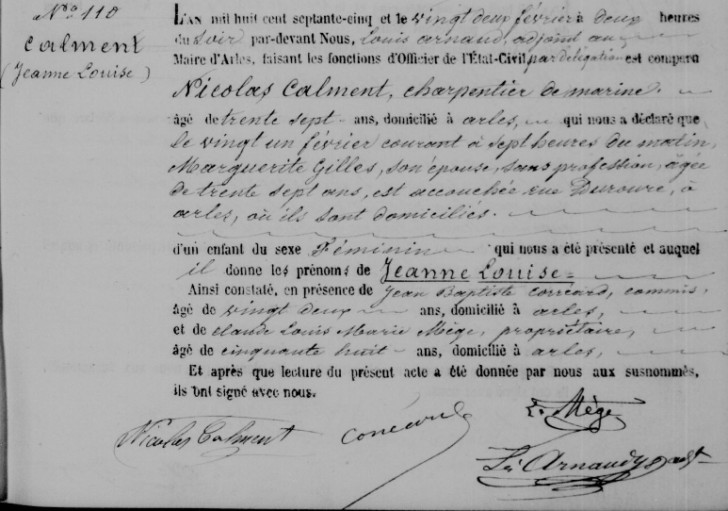 No. 110
Calment
(Jeanne Louise)
L'AN mil huit cent septante-cinq et le vingt deux février à deux heures
du soir par-devant Nous, Louis Arnaud, adjoint au
Maire d'Arles, faisant les fonctions d'Officier de l'État-Civil, par délégation est comparu
Nicolas Calment, charpentier de marine
âgé de trente sept ans, domicilié à arles, qui nous a déclaré que
le vingt un février courant à sept heures du matin,
Marguerite Gilles, son épouse, sans profession, âgée
de trente sept ans, est accouchée rue Duroure, à
arles, où ils sont domiciliés.
d'un enfant du sexe Féminin qui nous a été présenté et auquel
il donne les prénoms de Jeanne Louise
Ainsi constaté, en présence de Jean Baptiste Corréard, commis,
âgé de vingt deux ans, domicilié à arles,
et de claude Louis Marie Mège, propriétaire,
âgé de cinquante huit ans, domicilié à arles,
Et après que lecture du présent acte a été donnée par nous aux susnommés,
ils ont signé avec nous.
Nicolas Calment
L. Mège
Arnaud